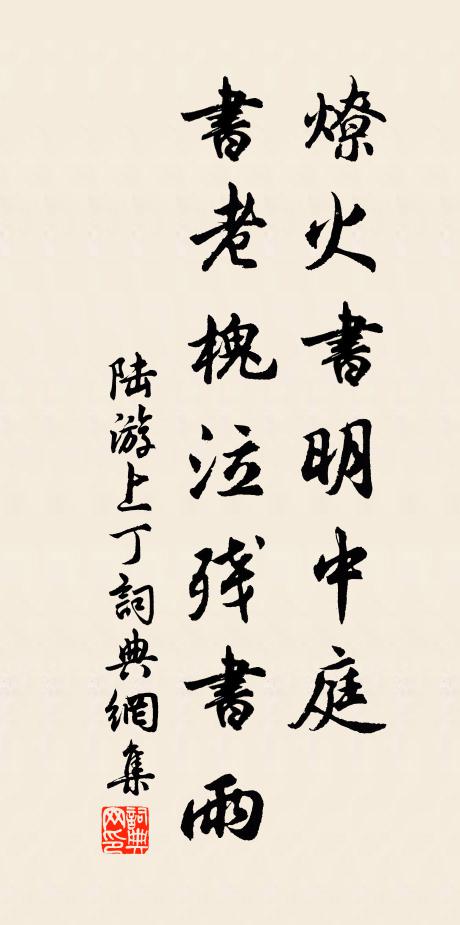 燎火書明中庭
書老槐泣残書雨
陆游上丁詞典網集
詞典网印